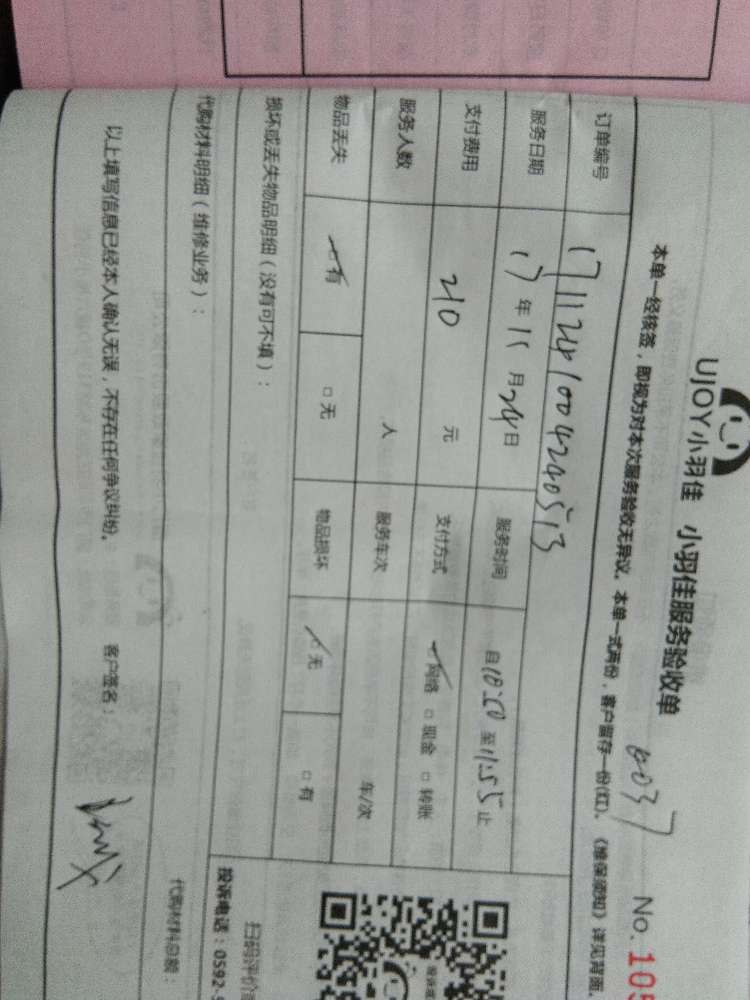 UJOY小羽佳 小羽佳服务验收单
8037
No.105
本单一经核签，即视为对本次服务验收无异议。本单一式两份，客户留存一份(红)。《维保须知》详见背面。
订单编号 1711241004240513
服务日期 17年11月24日 服务时间 自10:50至11:55止
支付费用 210元 支付方式 □网络 □现金 □转账
服务人数 人 服务车次 车/次
物品丢失 □有 □无 物品损坏 □无 □有
损坏或丢失物品明细（没有可不填）：
扫码评价
投诉电话：0592-5
代购材料明细（维修业务）：
代购材料总额：
以上填写信息已经本人确认无误，不存在任何争议纠纷。 客户签名：